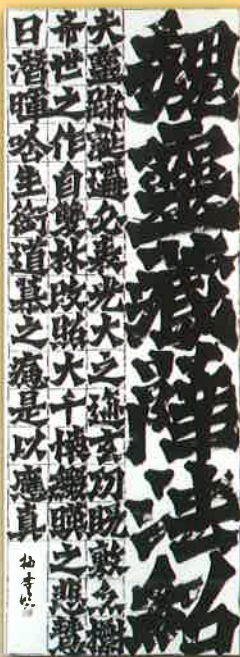 魏靈藏薛法紹
夫靈跡誕遘必表光大之迹玄功既敷亦標
希世之作自雙林改照大千懷綴暎之悲慧
日潛暉唅生銜道慕之痛是以應真